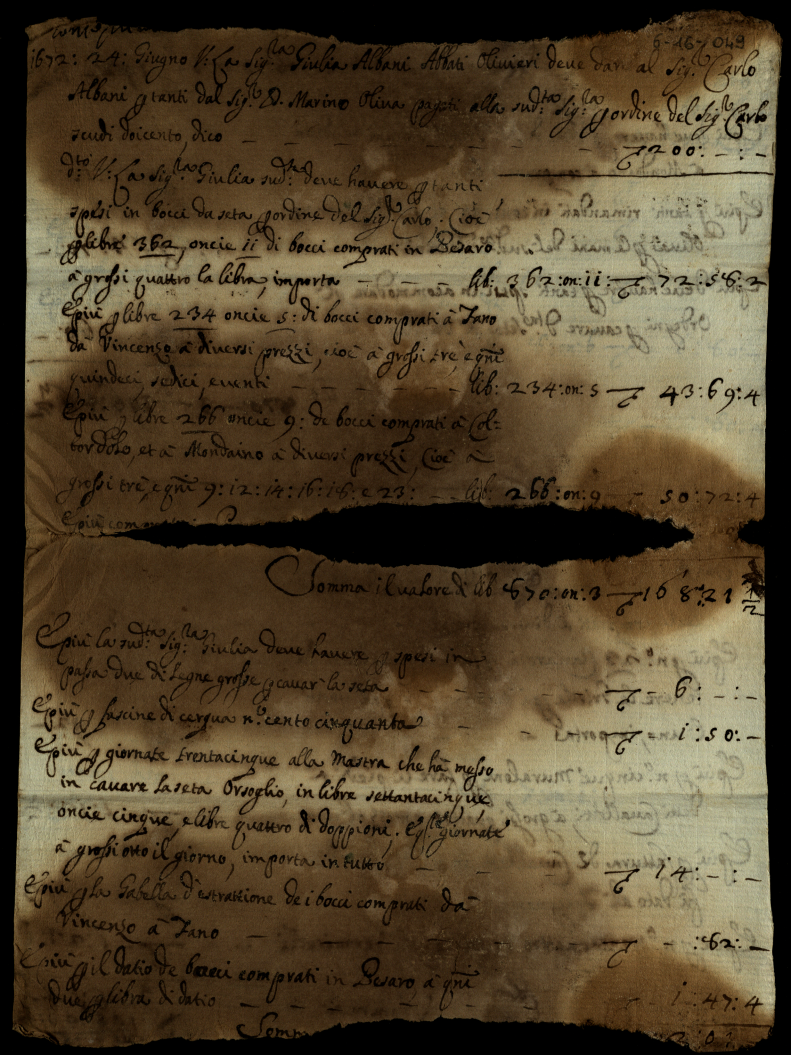 6-16-049
1672: 24: Giugno V: La Sig.la Giulia Albani Abbati Olivieri deve dare al Sig.r Carlo
Albani p tanti dal Sig.r D. Marino Oliva pagati alla sud.ta Sig.la p ordine del Sig.r Carlo
scudi doicento, dico — — — 200: – : –
d.to V: La Sig.la Giulia sud.ta deve havere p tanti
spesi in bocci da seta p ordine del Sig.r Carlo. Cioè
p libre 362, oncie 11 di bocci comprati in Pesaro
à grossi quattro la libra, importa — — — lib: 362: on: 11: 72: 58: 2
E più p libre 234 oncie 5: di bocci comprati à Fano
da Vincenzo à diversi prezzi, cioè à grossi tre, e qni
quindeci, sedici, e venti — — — lib: 234: on: 5 43: 69: 4
E più p libre 266 oncie 9: de bocci comprati à Col=
tordolo, et à Mondaino à diversi prezzi, Cioè à
grossi trè, e qni 9: 12: 14: 16: 18: e 23: — — lib: 266: on: 9 50: 72: 4
E più
Somma il valore di lib 870: on: 3 168: 21 1/2
E più la sud.ta Sig.la Giulia deve havere p spesi in
passa due di Legne grosse p cavar la seta — — 6: – : –
E più p fascine di cerqua n.o cento cinquanta — — 1: 50: –
E più p giornate trentacinque alla Mastra che hà messo
in cavare la seta Orsoglio, in libre settantacinque
oncie cinque, e libre quattro di doppioni, giornate
à grossi otto il giorno, importa in tutto — — 14: – : –
E più p la Gabella d'estrattione de i bocci comprati da
Vincenzo à Fano — — — : 62: –
E più p il datio de bocci comprati in Pesaro, à qni
due p libra di datio — — — 1: 47: 4
Somm